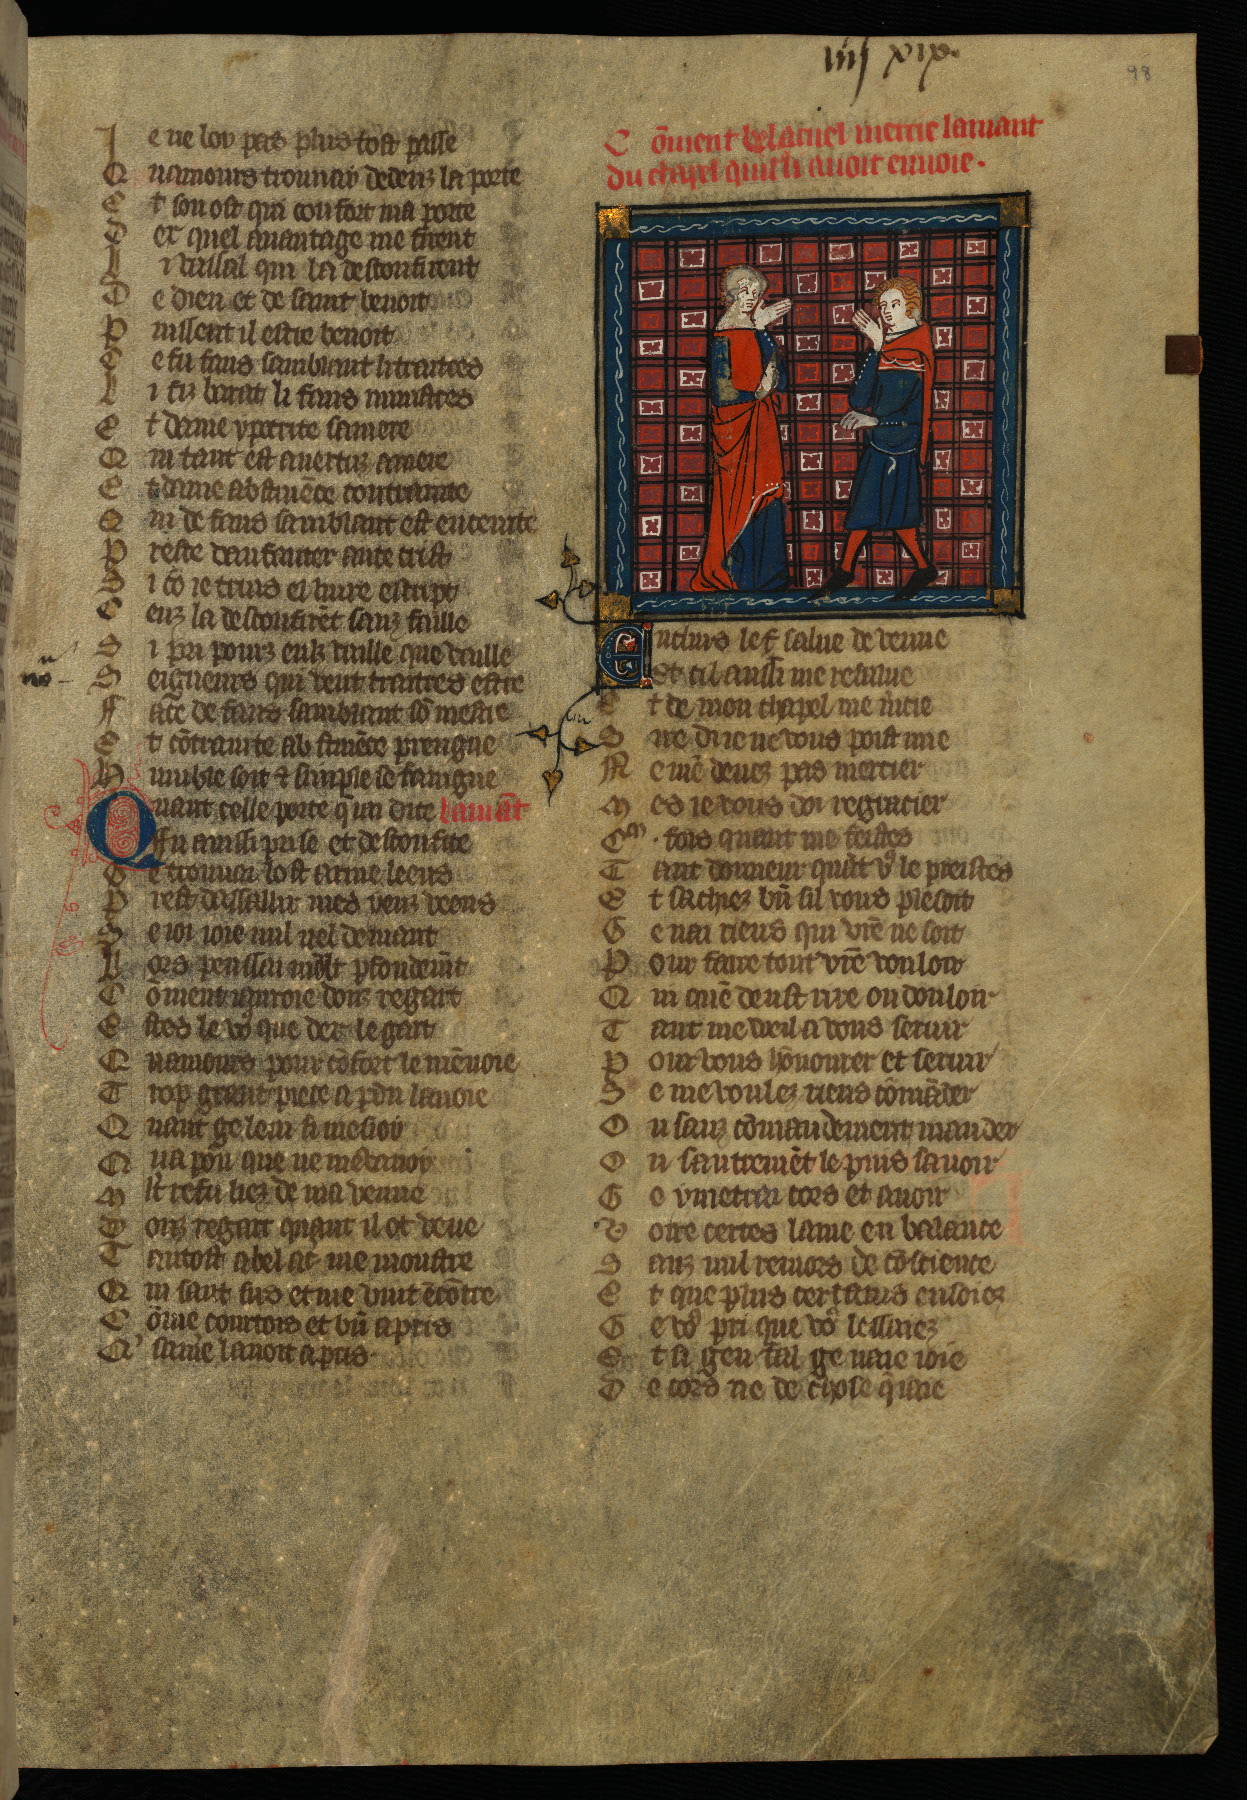 iiij xix.
98
J e ne lou pas plus tost passe
Q uamours trouuay dedenz la porte
E t son ost qui confort ma porte
D ex quel auantage me firent
L i vassal qui la desconfirent
D e dieu et de saint benoit
P uissent il estre benoit
C e fu faus samblant li traitres
L i fiz barat li faus ministres
E t dame ypocrite sa mere
Q ui tant est a vertuz amere
E t dame abstinēce contrainte
Q ui de faus samblant est enceinte
P reste denfanter antecrist
S i cō ie truis el liure escript
C euz la desconfirēt sanz faille
S i pri pour eulz vaille que vaille
S eigneurs qui veut traitres estre
F ace de faus samblant sō mestre
E t cōtrainte abstinēce prengne
H umble soit & simple se faingne
Quant celle porte q̄ iai dite lamāt
Vi ainssi prise et desconfite
E t trouuai lost arme leens
P rest dassallir mes yeuz veons
S e ioi ioie nul nel demant
L ors penssai mlt̄ pfondemt̄
C ōment iauroie douz regart
E stes le vo9 que dex le gart
Q uamours pour cōfort le mēuoie
T rop grant piece a pdu lauoie
Q uant ge le vi si mesioy
Q ua pou que ne mesuanoy
M lt̄ refu liez de ma venue
D ouz regart quant il ot veue
T antost a bel ac. me monstre
Q ui saut sus et me vint ēcōtre
C ōme courtois et bn̄ apris
Q' sa me lauoit apris
C ōment belacuel mercie lamant
du chapel quil li auoit enuoie.
Enclins le salue de venue
et cil aussi me resalue
E t de mon chapel me m̄cie
S ire dije ne vous poist mie
N e mē deuez pas mercier
M es ie vous doi regracier
Cm. fois quant me feistes
T ant donneur quāt v9 le preistes
E t sachiez bn̄ sil vous plesoit
G e nai riens qui vr̄e ne soit
P our faire tout vr̄e vouloir
Q ui quē deust rire ou douloir
T ant me vueil a vous seruir
P our vous hōnourer et seruir
S e me voulez riens cōmāder
O u sanz cōmandement mander
O u sautremēt le puis sauoir
G e y metrai cors et auoir
V oire certes lame en balance
S anz nul remors de cōscience
E t que plus certains ensoiez
G e vo9 pri que vo9 lessaiez
E t si gen fal ge naie ioie
D e cors ne de chose q̄ iaie